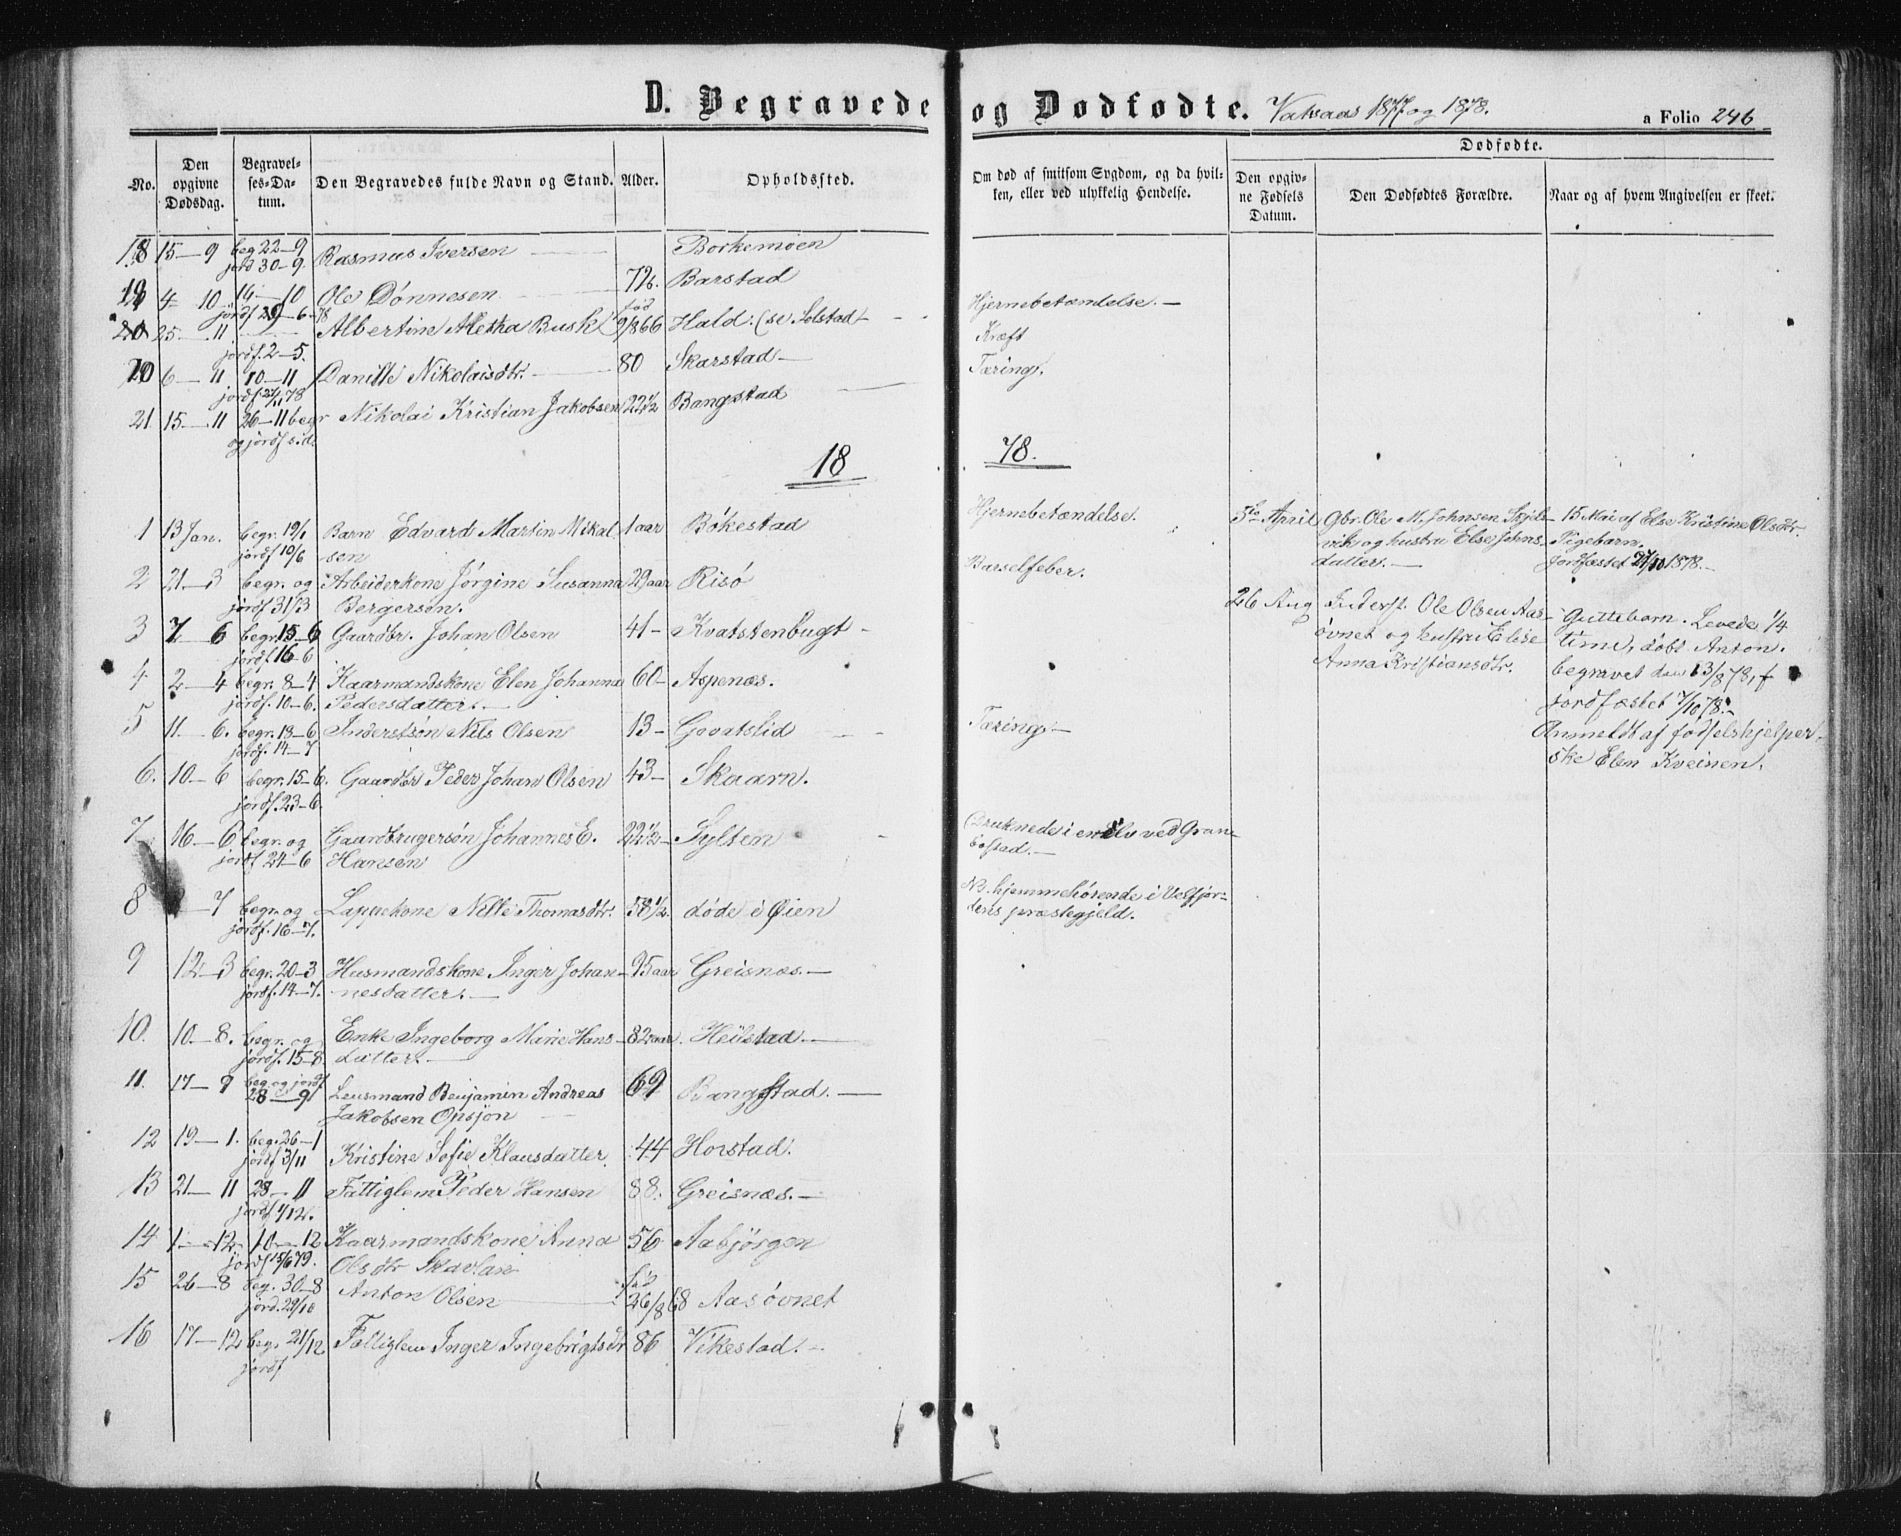 D. Begravede og Dødfødte. Vatsaas 1877 og 1878. a Folio 246
No.
Den opgivne Dødsdag.
Begravelses-Datum.
Den Begravedes fulde Navn og Stand.
Alder.
Opholdssted.
Om død af smitsom Sygdom, og da hvilken, eller ved ulykkelig Hendelse.
Dødfødte.
Den opgivne Fødsels Datum.
Den Dødfødtes Forældre.
Naar og af hvem Angivelsen er skeet.
18 15–9 beg 22–9 Rasmus Iversen Borkemoen
jord 30–9.
19 4–10 14–10 Ole Dönnesen 7 1/2. Barstad Hjernebetændelse.
jordf 29–6 78
25–11 Albertine Metha Busk fød 9/8 66 Hald. (se Solstad Kræft
jordf. 2–5.
20 6–11 10–11 Danille Nikolaisdtr. 80 Skarstad Tæring.
21 15–11 26–11 begr Nikolai Kristian Jakobsen 22 1/2 Bangstad
og jordf s.d.
18 78.
1 13 Jan. begr. 19/1 Barn Edvard Martin Mikal 1 aar Bökestad Hjernebetændelse.
jordf 10/6 sen
2 21–3 begr. og Arbeiderkone Jörgine Susanna 29 aar Risö Barselfeber.
jordf 31/3 Bergersen.
3 7–6 begr. 15–6 Gaardbr. Johan Olsen 41– Kvatstenbugt
jordf. 16–6
4 2–4 begr. 8–4 Kaarmandskone Elen Johanna 60– Aspenæs.
jordf. 10–6. Pedersdatter.
5 11–6. begr. 13–6 Inderstsön Nils Olsen 13– Govatslid Tæring.
jordf. 14–7
6. 10–6 begr. 15–6. Gaardbr Peder Johan Olsen 43– Skaarn.
jordf. 23–6.
7 16–6 begr. og Gaardbrugersön Johannes E. 22 1/2– Sylten Druknede i en elv ved Gran-
jordf 24–6 Hansen bostad.
8 –7 begr. og Lappekone Nelle Thomasdtr. 58 1/2. döde i Øien NB. hjemmehörende i Velfjor-
jordf. 16–7. dens præstegjeld.
9 12–3 begr. 20–3 Husmandskone Inger Johan- 95 aar Greisnæs.
jordf. 14–7. nesdatter.
10. 10–8. begr. og Enke Ingeborg Marie Hans- 82 aar. Heilstad.
jordf. 15–8 datter.
11. 17–9 beg og jordf Leusmand Benjamin Andreas 69 Bangstad.
28–9 Jakobsen Opsjon
12 19–1. beg. 26–1 Kristine Sofie Klausdatter 44 Horstad.
jordf 3/11
13 21–11 28–11 Fattiglem Peder Hansen 88. Greisnæs.
jordf 1/12.
14 1–12 10–12 Kaarmandskone Anna 56 Aabjörgen
jordf 15/6 79. Olsdtr Skavlan
15 26–8 beg. 30–8 Anton Olsen fød 26/8 68 Aasövnet
jord. 29/10
16 17–12 beg. 21/12 Fattiglem Inger Ingebrigtsdtr 86 Vikestad.
jordf
5te April Gbr. Ole M. Johnsen Skjels- 15 Mai af Else Kristine Olsdtr.
vik og hustru Else Johns- Pigebarn.
datter. Jordfæstet 27/10 1878.
26 Aug Inderst. Ole Olsen Aas- Guttebarn. Levede 1/4
övnet og hustru Elise time, döbt Anton.
Anna Kristiansdtr. begravet den 13/8 78,
jordfæstet 7/10 78.
Anmeldt af födselshjelper-
ske Elen Kveinen.